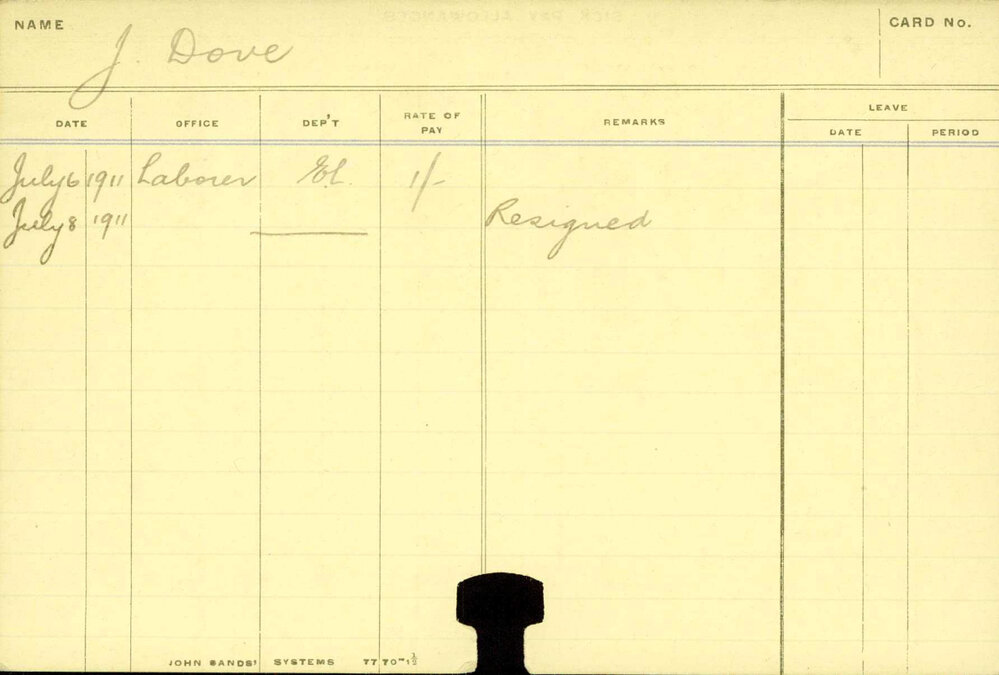 NAME J. Dove CARD No.
DATE OFFICE DEP'T RATE OF PAY REMARKS LEAVE
DATE PERIOD
July 6 1911 Laborer El. 1/-
July 8 1911 Resigned
JOHN SANDS' SYSTEMS 7770-1½